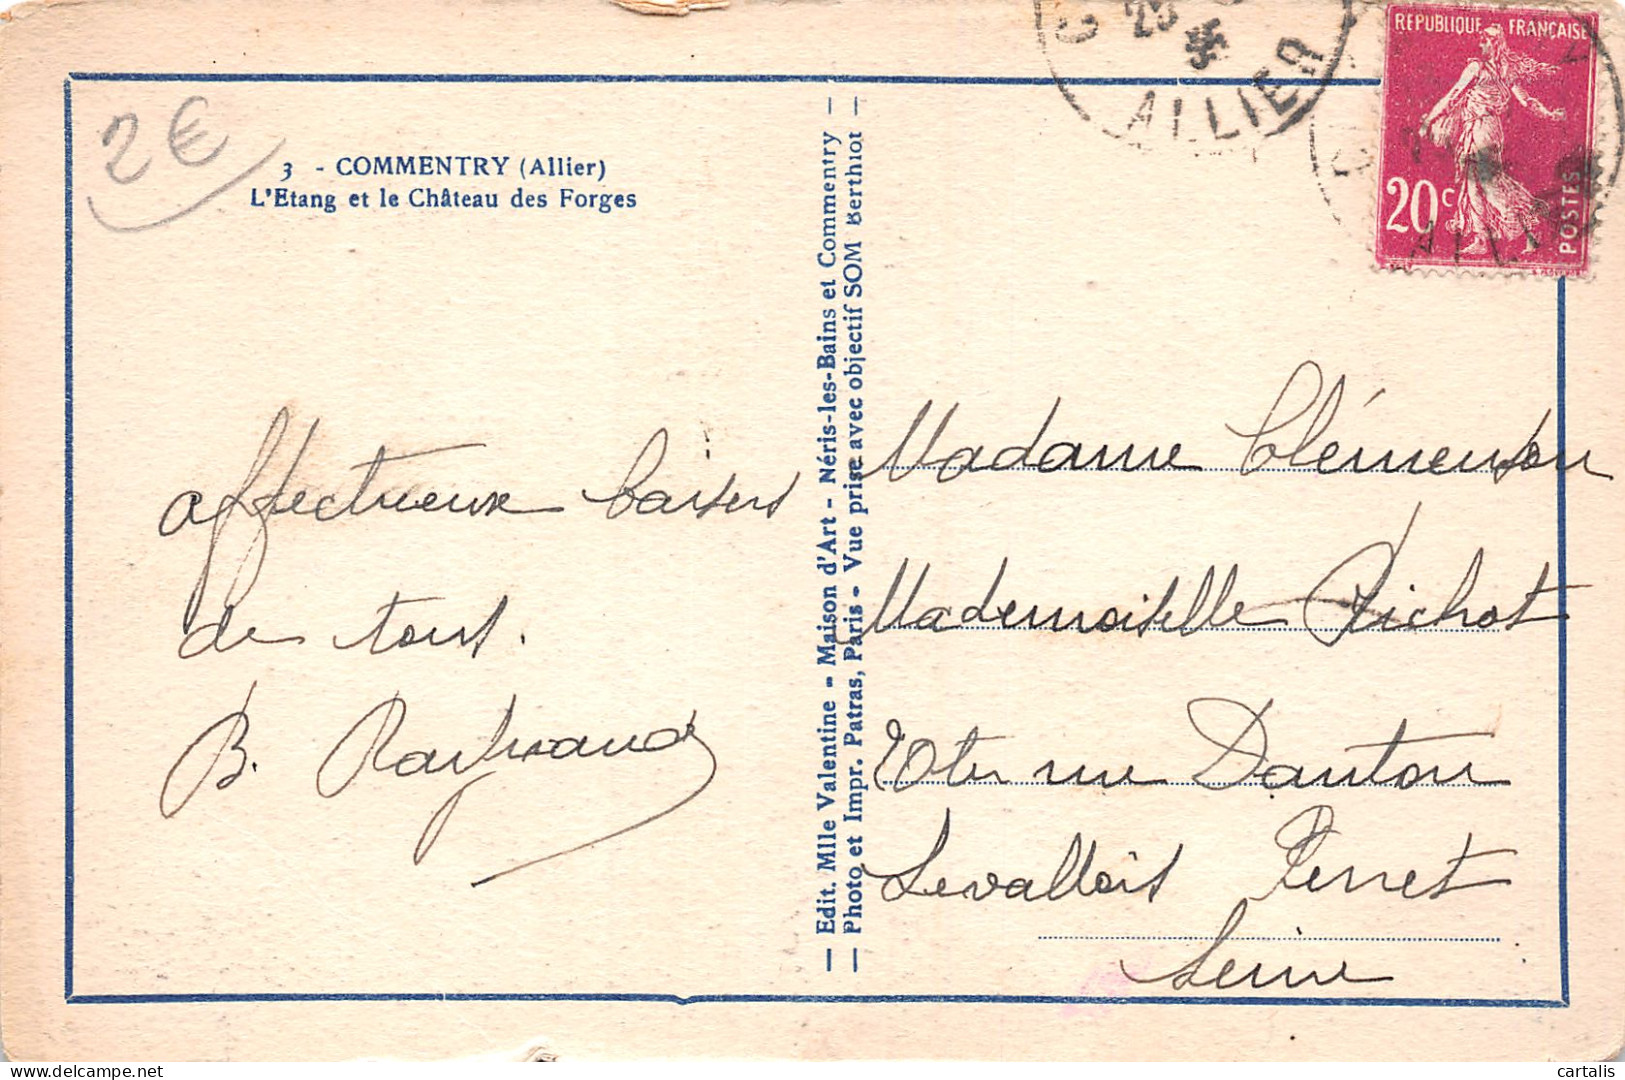 2€
3 - COMMENTRY (Allier)
L'Etang et le Château des Forges
affectueux baisers
de tous.
B.
— Edit. Mlle Valentine - Maison d'Art - Néris-les-Bains et Commentry —
— Photo et Impr. Patras, Paris - Vue prise avec objectif SOM Berthiot —
25
35
ALLIER
REPUBLIQUE FRANÇAISE
20c
POSTES
ALLIER
Madame Clémenson
Mademoiselle Pichot
rue Danton
Levallois Perret
Seine
cartalis